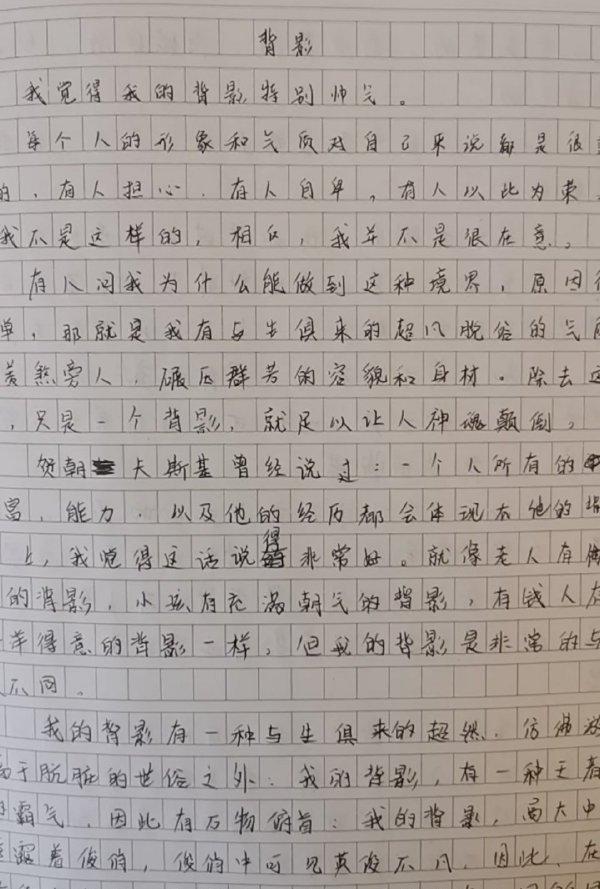 背影
我觉得我的背影特别帅气。
每个人的形象和气质对自己来说都是很
的，有人担心，有人自卑，有人以此为荣，
我不是这样的，相反，我并不是很在意。
有人问我为什么能做到这种境界，原因很
单，那就是我有与生俱来的超凡脱俗的气质
羡煞旁人，碾压群芳的容貌和身材。除去这
，只是一个背影，就足以让人神魂颠倒。
贺朝夫斯基曾经说过：一个人所有的
富，能力，以及他的经历都会体现在他的背
上，我觉得这话说得非常好。就像老人有
的背影，小孩有充满朝气的背影，有钱人有
洋得意的背影一样，但我的背影是非常的与
不同。
我的背影有一种与生俱来的超然，仿佛游
于肮脏的世俗之外；我的背影，有一种王者
霸气，因此有万物俯首；我的背影，高大中
透露着俊俏，俊俏中可见英姿不凡，因此，在